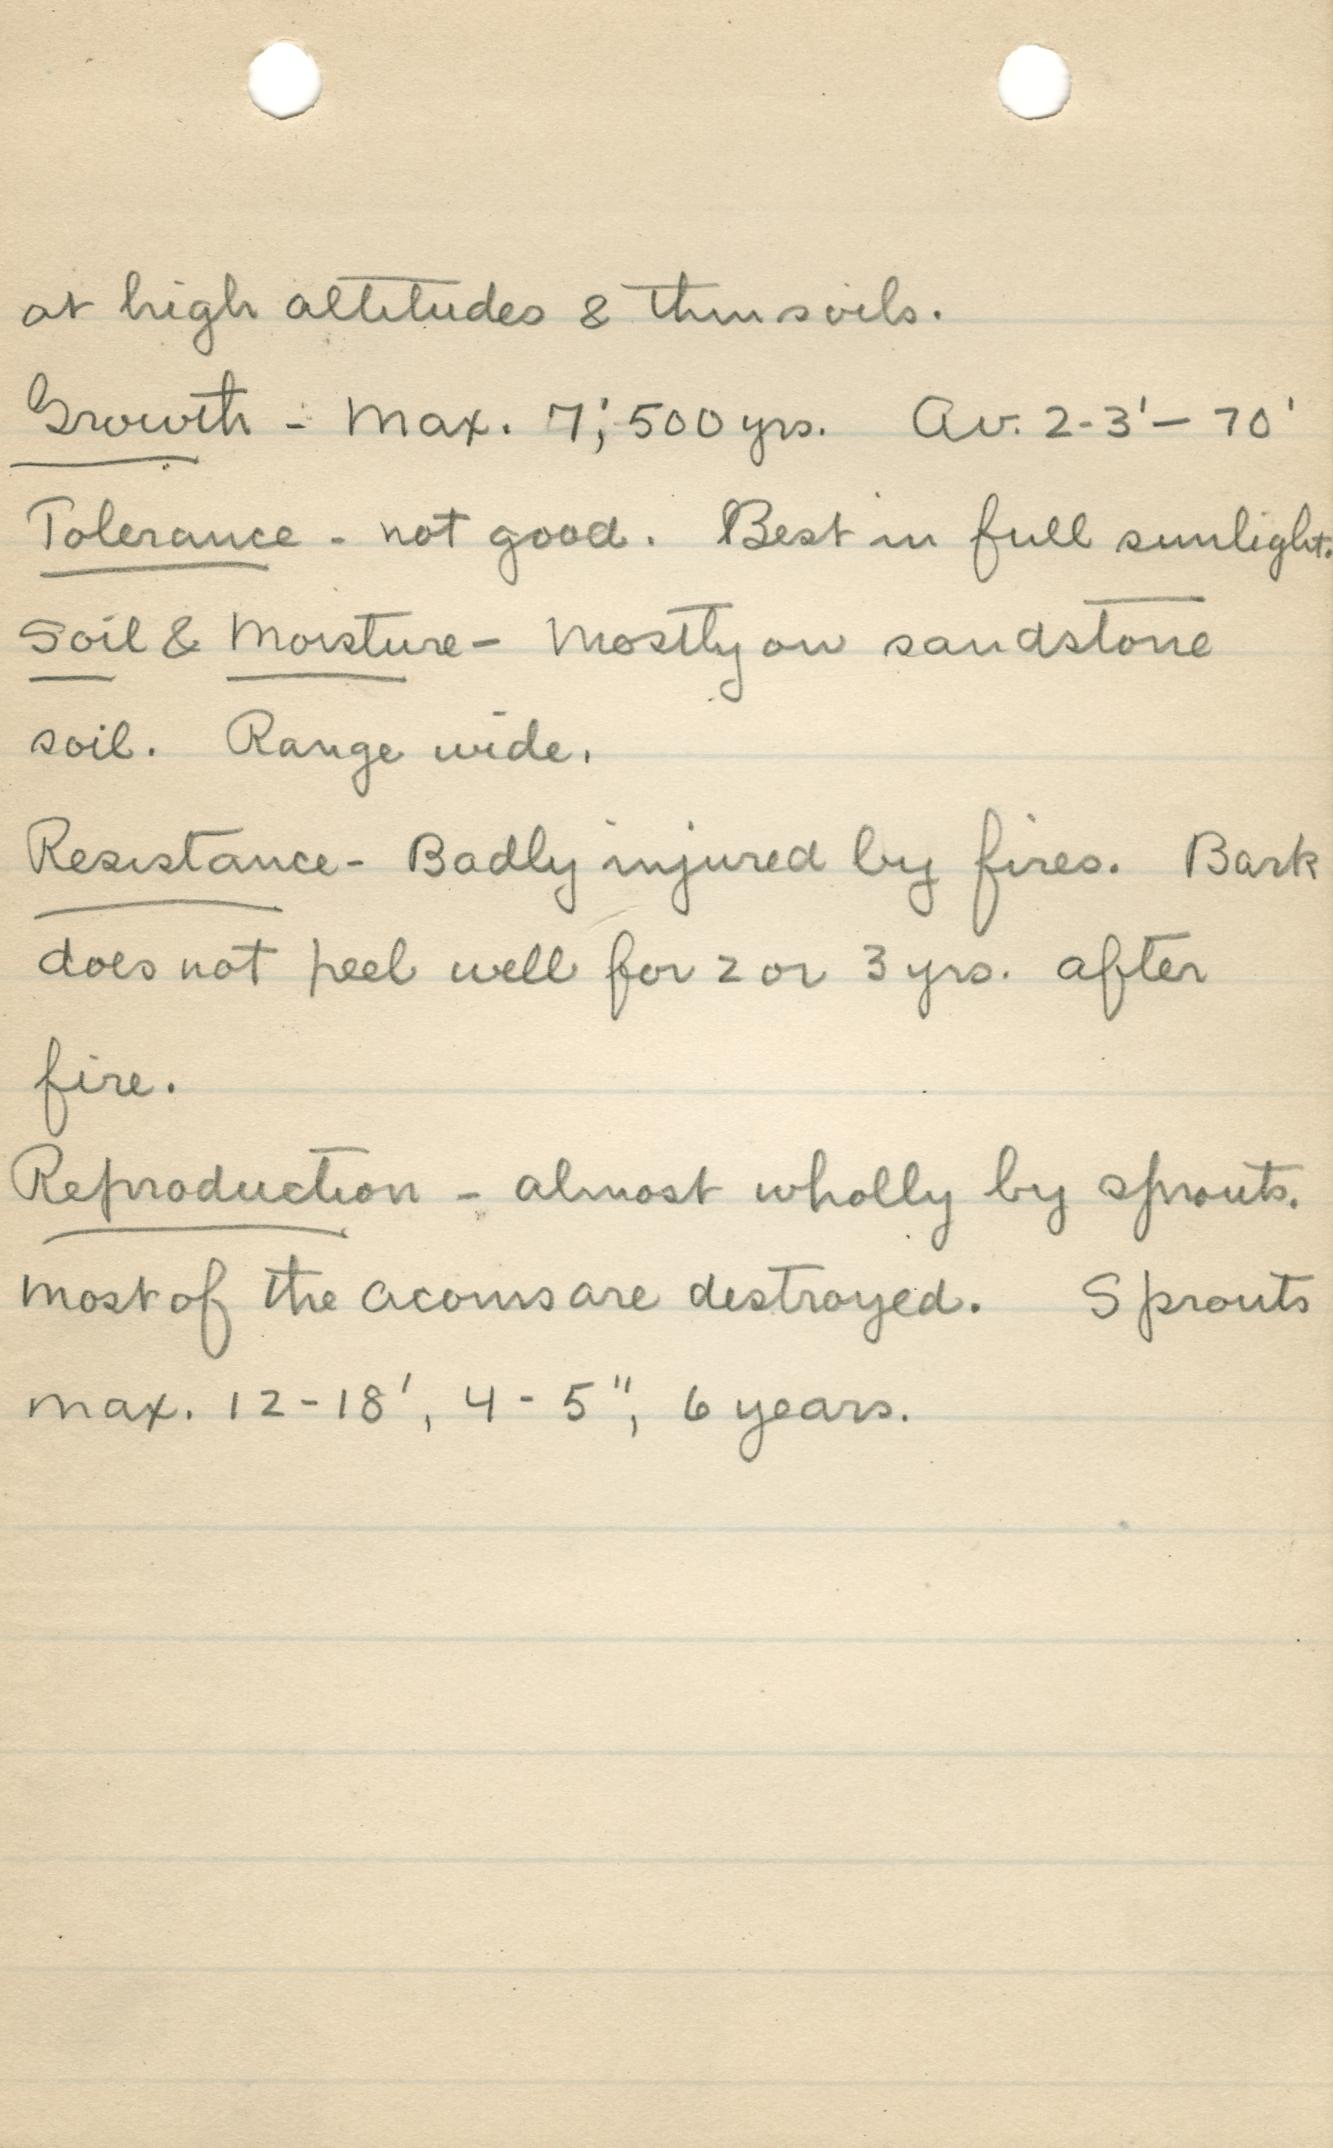 at high altitudes & thin soils.
Growth - Max. 7'; 500 yrs. Av. 2-3' - 70'
Tolerance - not good. Best in full sunlight.
Soil & Moisture - Mostly on sandstone
soil. Range wide.
Resistance - Badly injured by fires. Bark
does not peel well for 2 or 3 yrs. after
fire.
Reproduction - almost wholly by sprouts.
Most of the acorns are destroyed. Sprouts
max. 12-18', 4-5", 6 years.